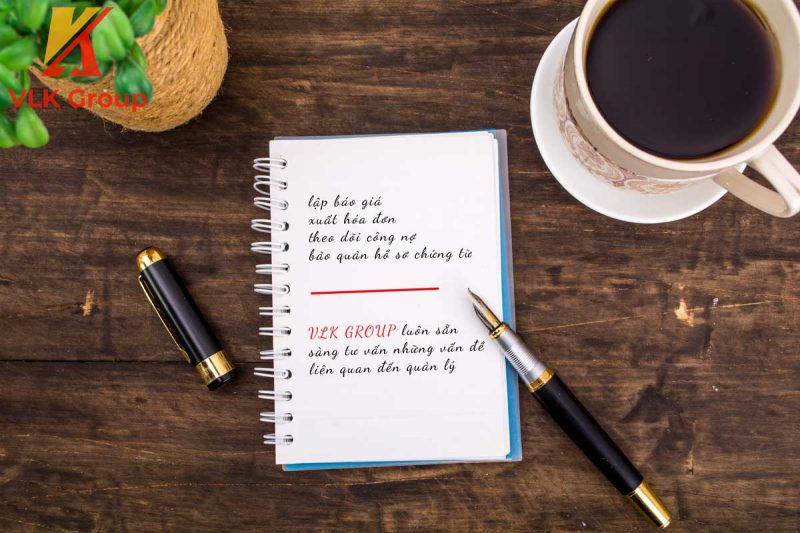 VLK Group
lập báo giá
xuất hóa đơn
theo dõi công nợ
bảo quản hồ sơ chứng từ
VLK GROUP luôn sẵn
sàng tư vấn những vấn đề
liên quan đến quản lý